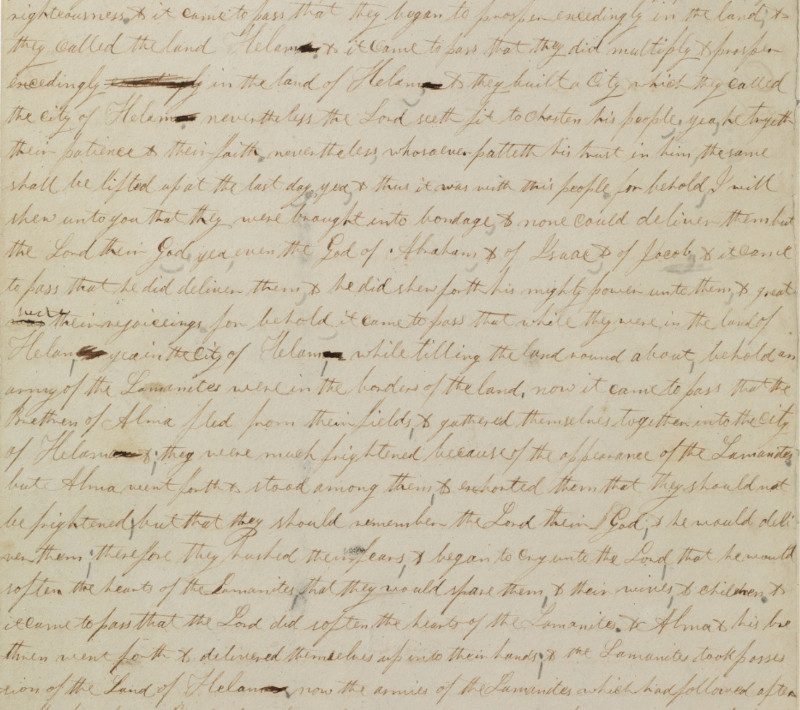 righteousness & it came to pass that they began to prosper exceedingly in the land, &
they called the land Helam & it came to pass that they did multiply & prosper
exceedingly in the land of Helam & they built a City which they called
the city of Helam nevertheless the Lord seeth fit to chasten his people, yea, he tryeth
their patience & their faith nevertheless, whosoever putteth his trust in him, the same
shall be lifted up at the last day, yea, & thus it was with this people, for behold, I will
shew unto you that they were braught into bondage, & none could deliver them but
the Lord their God, yea, even the God of Abraham, & of Isaac & of Jacob, & it came
to pass that he did deliver them, & he did shew forth his mighty power unto them, & great
were their rejoiceings, for behold, it came to pass that while they were in the land of
Helam, yea in the City of Helam, while tilling the land round about, behold an
army of the Lamanites were in the borders of the land, now it came to pass that the
Brethren of Alma fled from their fields, & gathered themselves together into the City
of Helam &; they were much frightened because of the appearance of the Lamanites
but Alma went forth & stood among them, & exhorted them that they should not
be frightened, but that they should remember the Lord their God, & he would deli
ver them; therefore they hushed their fears, & began to cry unto the Lord, that he would
soften the hearts of the Lamanites, that they would spare them, & their wives, & children, &
it came to pass that the Lord did soften the hearts of the Lamanites. & Alma & his bre
thren went forth & delivered themselves up into their hands; & the Lamanites took posses
sion of the Land of Helam now the armies of the Lamanites which had followed after